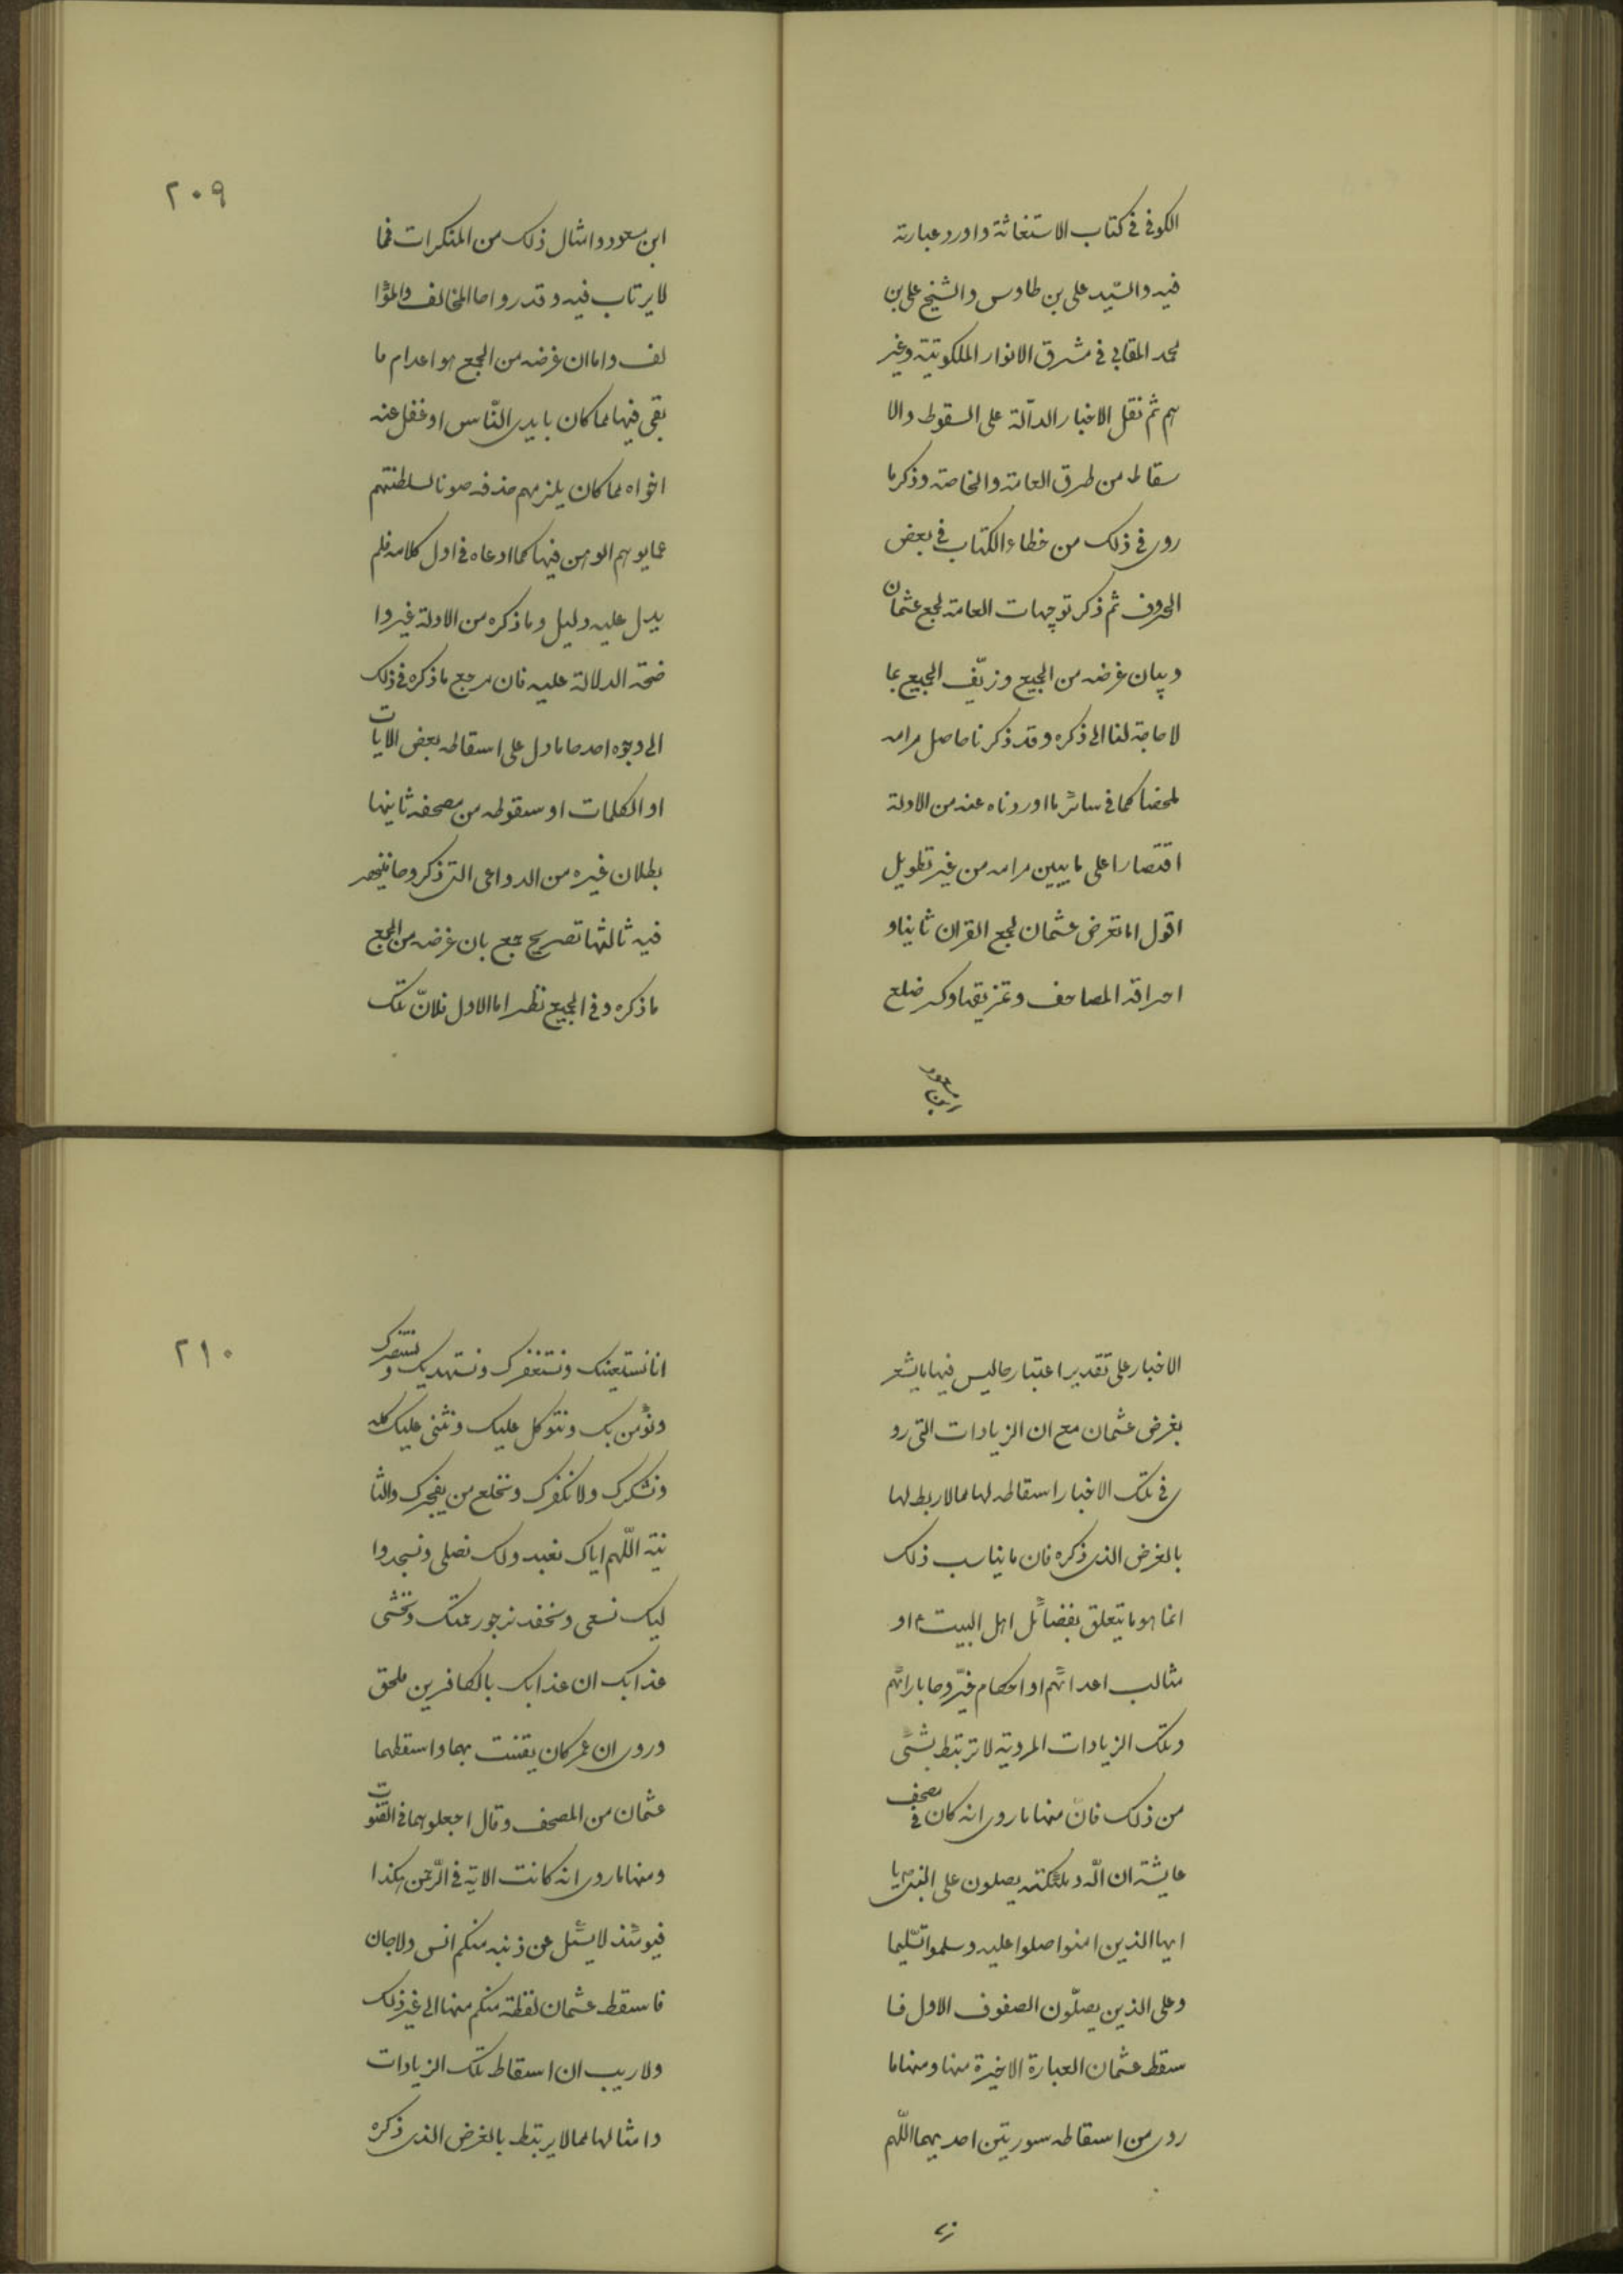 الكوفى فى كتاب الاستغاثة واورد عبارته
فيه والسّيد على بن طاوس والشيخ على بن
محمد المقابى فى مشرق الانوار الملكوتية وغير
هم ثم نقل الاخبار الدآلة على السقوط والا
سقاط من طرق العامة والخاصة وذكر ما
روى فى ذلك من خطاء الكتاب فى بعض
الحروف ثم ذكر توجيهات العامة لجمع عثمان
وبيان غرضه من الجميع وزيّف الجميع بما
لا حاجة لنا الى ذكره وقد ذكرنا حاصل مرامه
ملخصا كما فى سائر ما اوردناه عنه من الادلة
اقتصارا على ما يبين مرامه من غير تطويل
اقول اما تعرض عثمان لجمع القران ثانيا و
احراقه المصاحف وتمزيقها وكسر ضلع
ابن مسعود
٢٠٩
ابن مسعود وامثال ذلك من المنكرات فمما
لا يرتاب فيه وقد رواها المخالف والمؤا
لف واما ان غرضه من الجمع هو اعدام ما
بقى فيها مما كان بايدى النّاس او غفل عنه
اخواه مما كان يلزمهم حذفه صونا لسلطنتهم
عما يوهم الوهن فيها كما ادعاه فى اول كلامه فلم
يدل عليه دليل وما ذكره من الادلة غير وا
ضحة الدلالة عليه فان مرجع ما ذكره فى ذلك
الى وجوه احدها ما دل على اسقاطه بعض الايات
او الكلمات او سقوطه من مصحفه ثانيها
بطلان غيره من الدواعى التى ذكروها فينحصر
فيه ثالثها تصريح جمع بان غرضه من الجمع
ما ذكره وفى الجميع نظر اما الاول فلانّ تلك
الاخبار على تقدير اعتبارها ليس فيها ما يشعر
بغرض عثمان مع ان الزيادات التى رو
ى فى تلك الاخبار اسقاطه لها مما لا ربط لها
بالغرض الذى ذكره فان ما يناسب ذلك
انما هو ما يتعلق بفضائل اهل البيت ع او
مثالب اعدائهم او احكام غيّروها بارائهم
وتلك الزيادات المروية لا ترتبط بشئ
من ذلك فان منها ما روى انه كان فى مصحف
عايشة ان الله وملئكته يصلون على النبى ص يا
ايها الذين امنوا صلوا عليه وسلموا تسليما
وعلى الذين يصلّون الصفوف الاول فا
سقط عثمان العبارة الاخيرة منها ومنها ما
روى من اسقاطه سورتين احديهما اللّهم
٢١٠
انا نستعينك ونستغفرك ونستهديك و نستنصرك
ونؤمن بك ونتوكل عليك ونثنى عليك كله
ونشكرك ولا نكفرك ونخلع من يفجرك والثا
نية اللّهم اياك نعبد ولك نصلى ونسجد وا
ليك نسعى ونحفد نرجو رحمتك ونخشى
عذابك ان عذابك بالكافرين ملحق
وروى ان عمر كان يقنت بهما واسقطهما
عثمان من المصحف وقال اجعلوهما فى القنوت
ومنها ما روى انه كانت الاية فى الرّحمن هكذا
فيومئذ لا يسئل عن ذنبه منكم انس ولا جان
فاسقط عثمان لفظة منكم منها الى غير ذلك
ولا ريب ان اسقاط تلك الزيادات
وامثالها مما لا يرتبط بالغرض الذى ذكره